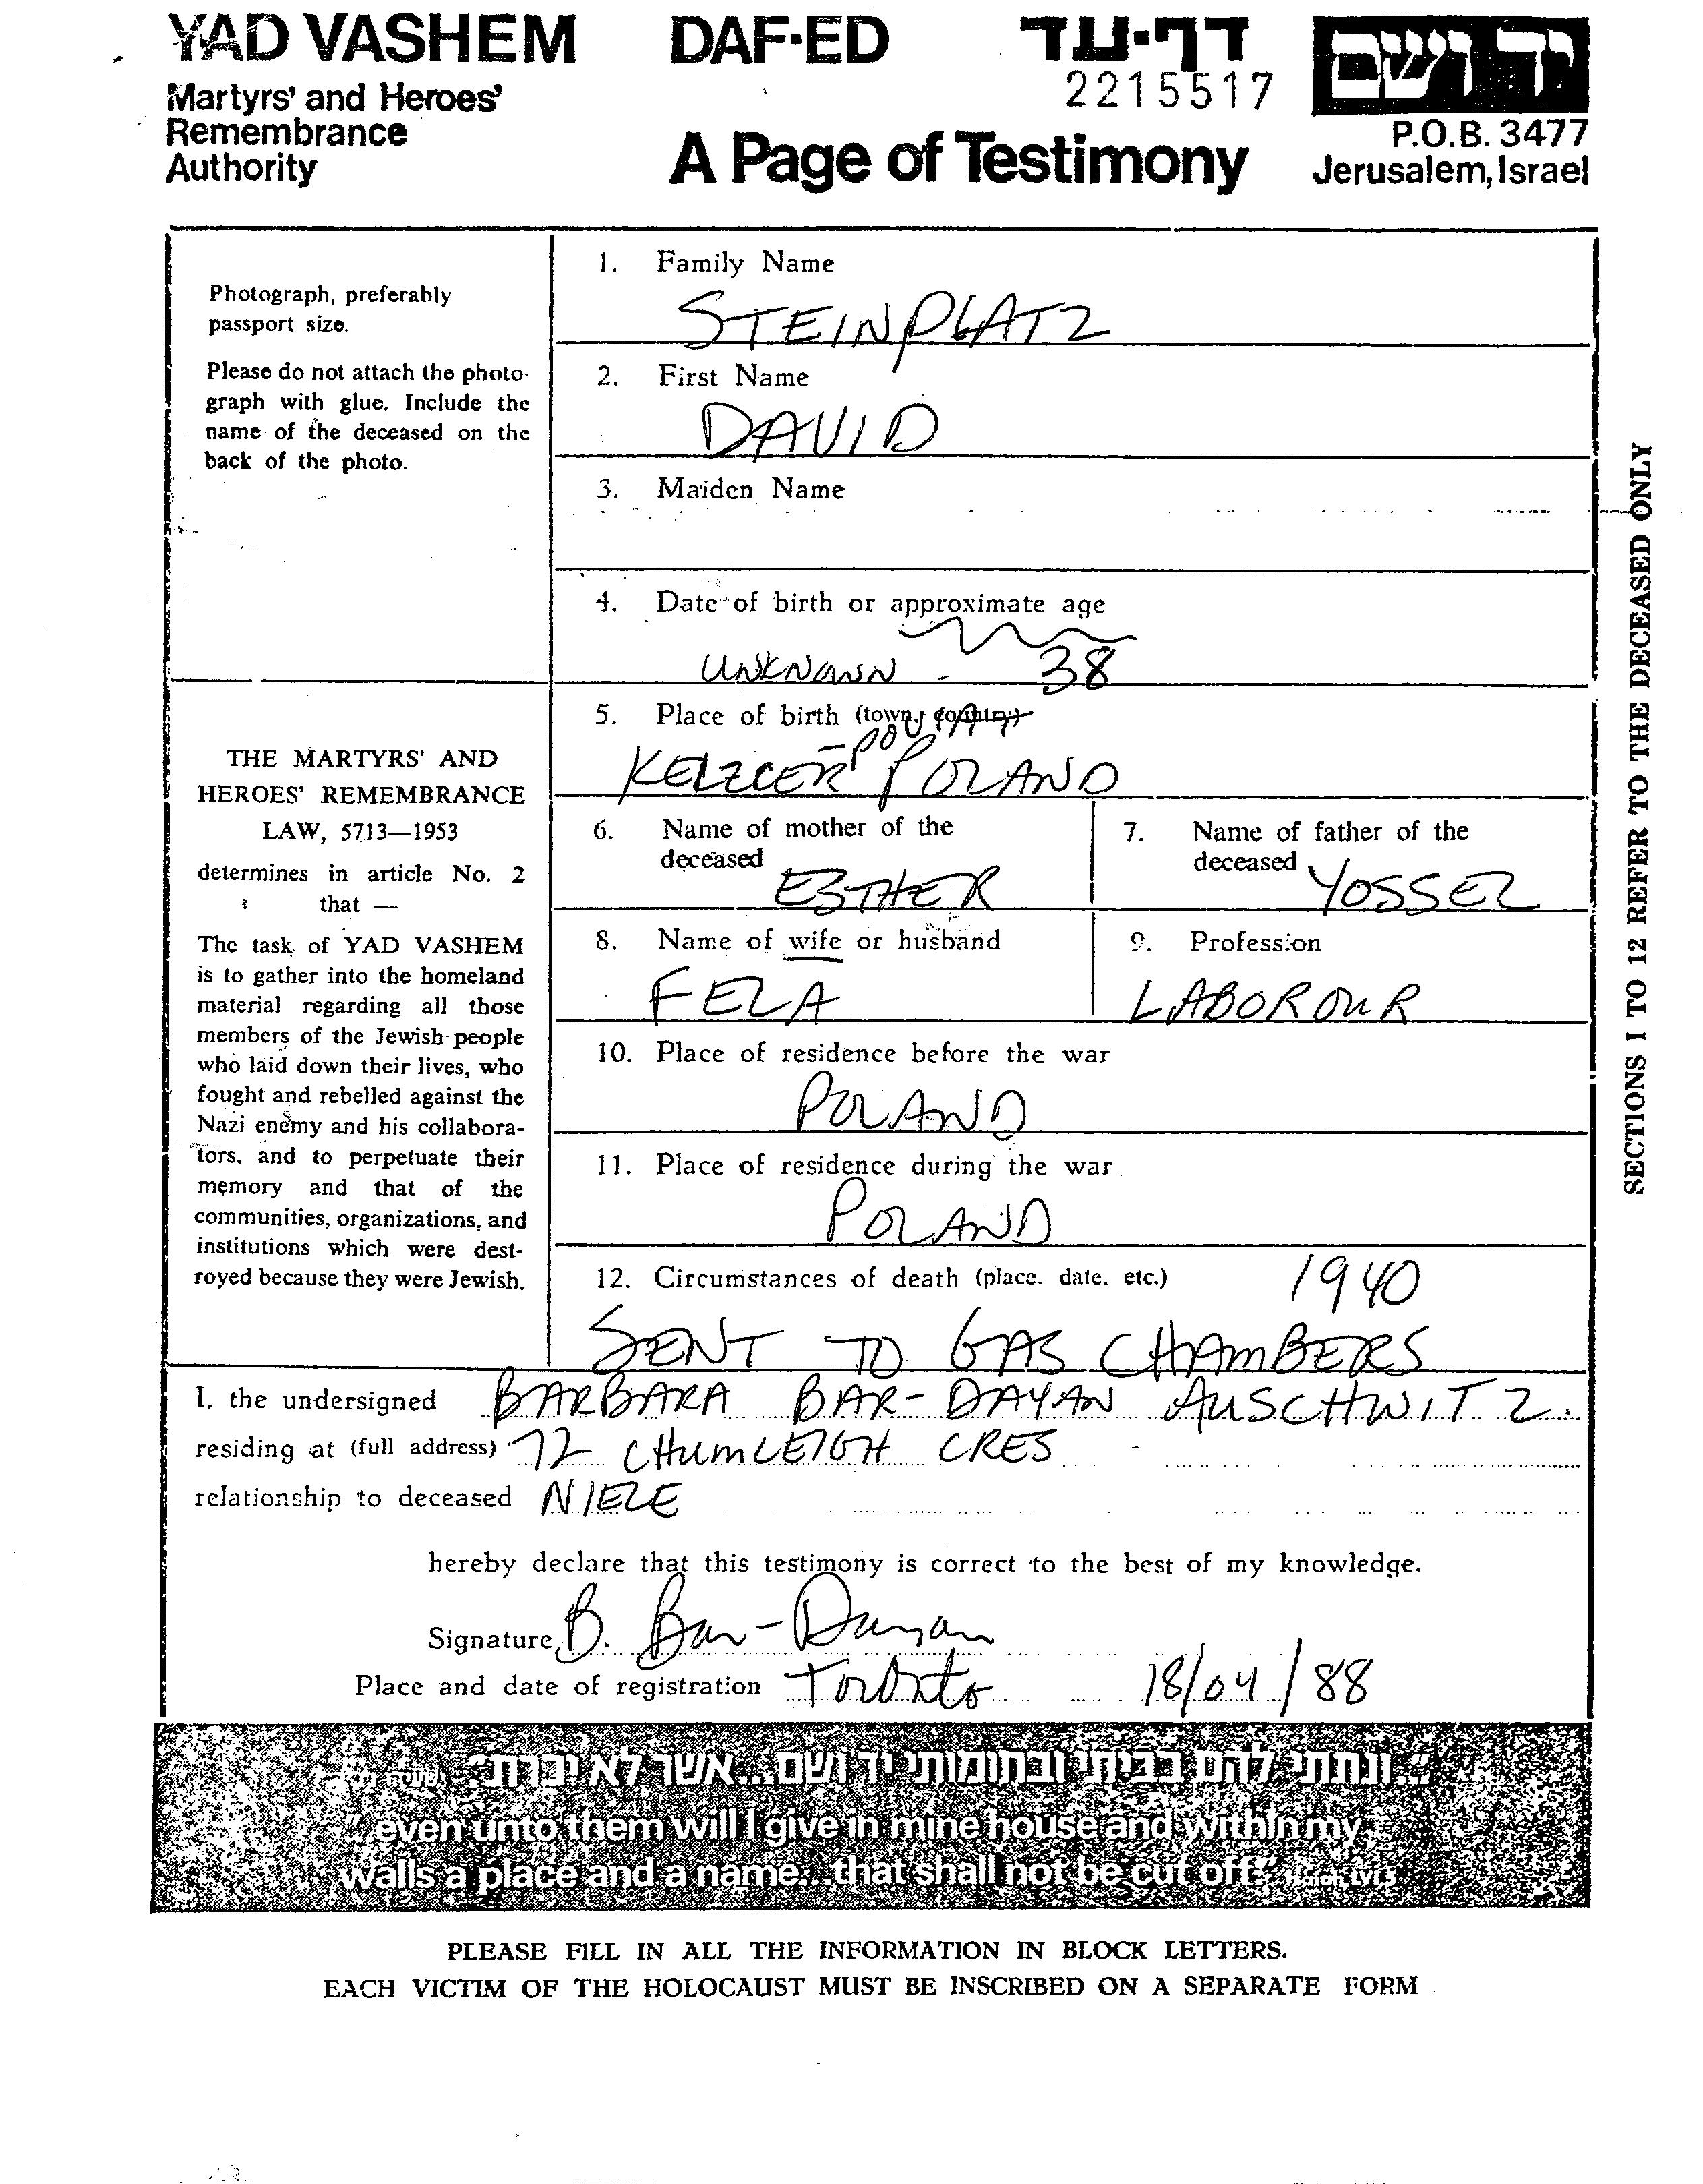 YAD VASHEM DAF-ED דף-עד יד ושם
Martyrs' and Heroes' 2215517
Remembrance P.O.B. 3477
Authority A Page of Testimony Jerusalem, Israel
Photograph, preferably
passport size.
Please do not attach the photo-
graph with glue. Include the
name of the deceased on the
back of the photo.
THE MARTYRS' AND
HEROES' REMEMBRANCE
LAW, 5713—1953
determines in article No. 2
that —
The task of YAD VASHEM
is to gather into the homeland
material regarding all those
members of the Jewish people
who laid down their lives, who
fought and rebelled against the
Nazi enemy and his collabora-
tors, and to perpetuate their
memory and that of the
communities, organizations, and
institutions which were dest-
royed because they were Jewish.
1. Family Name
STEINPLATZ
2. First Name
DAVID
3. Maiden Name
4. Date of birth or approximate age
UNKNOWN 38
5. Place of birth (town, country)
POLAND
6. Name of mother of the
deceased ESTHER
7. Name of father of the
deceased YOSSEL
8. Name of wife or husband
FELA
9. Profession
LABOROUR
10. Place of residence before the war
POLAND
11. Place of residence during the war
POLAND
12. Circumstances of death (place, date, etc.) 1940
SENT TO GAS CHAMBERS
AUSCHWITZ.
I, the undersigned BARBARA BAR-DAYAN
residing at (full address) 72 CHUMLEIGH CRES
relationship to deceased NIECE
hereby declare that this testimony is correct to the best of my knowledge.
Signature B. Bar-Dayan
Place and date of registration Toronto 18/04/88
SECTIONS 1 TO 12 REFER TO THE DECEASED ONLY
"...ונתתי להם בביתי ובחומותי יד ושם...אשר לא יכרת"
"...even unto them will I give in mine house and within my
walls a place and a name...that shall not be cut off." Isaiah LVI,5
PLEASE FILL IN ALL THE INFORMATION IN BLOCK LETTERS.
EACH VICTIM OF THE HOLOCAUST MUST BE INSCRIBED ON A SEPARATE FORM